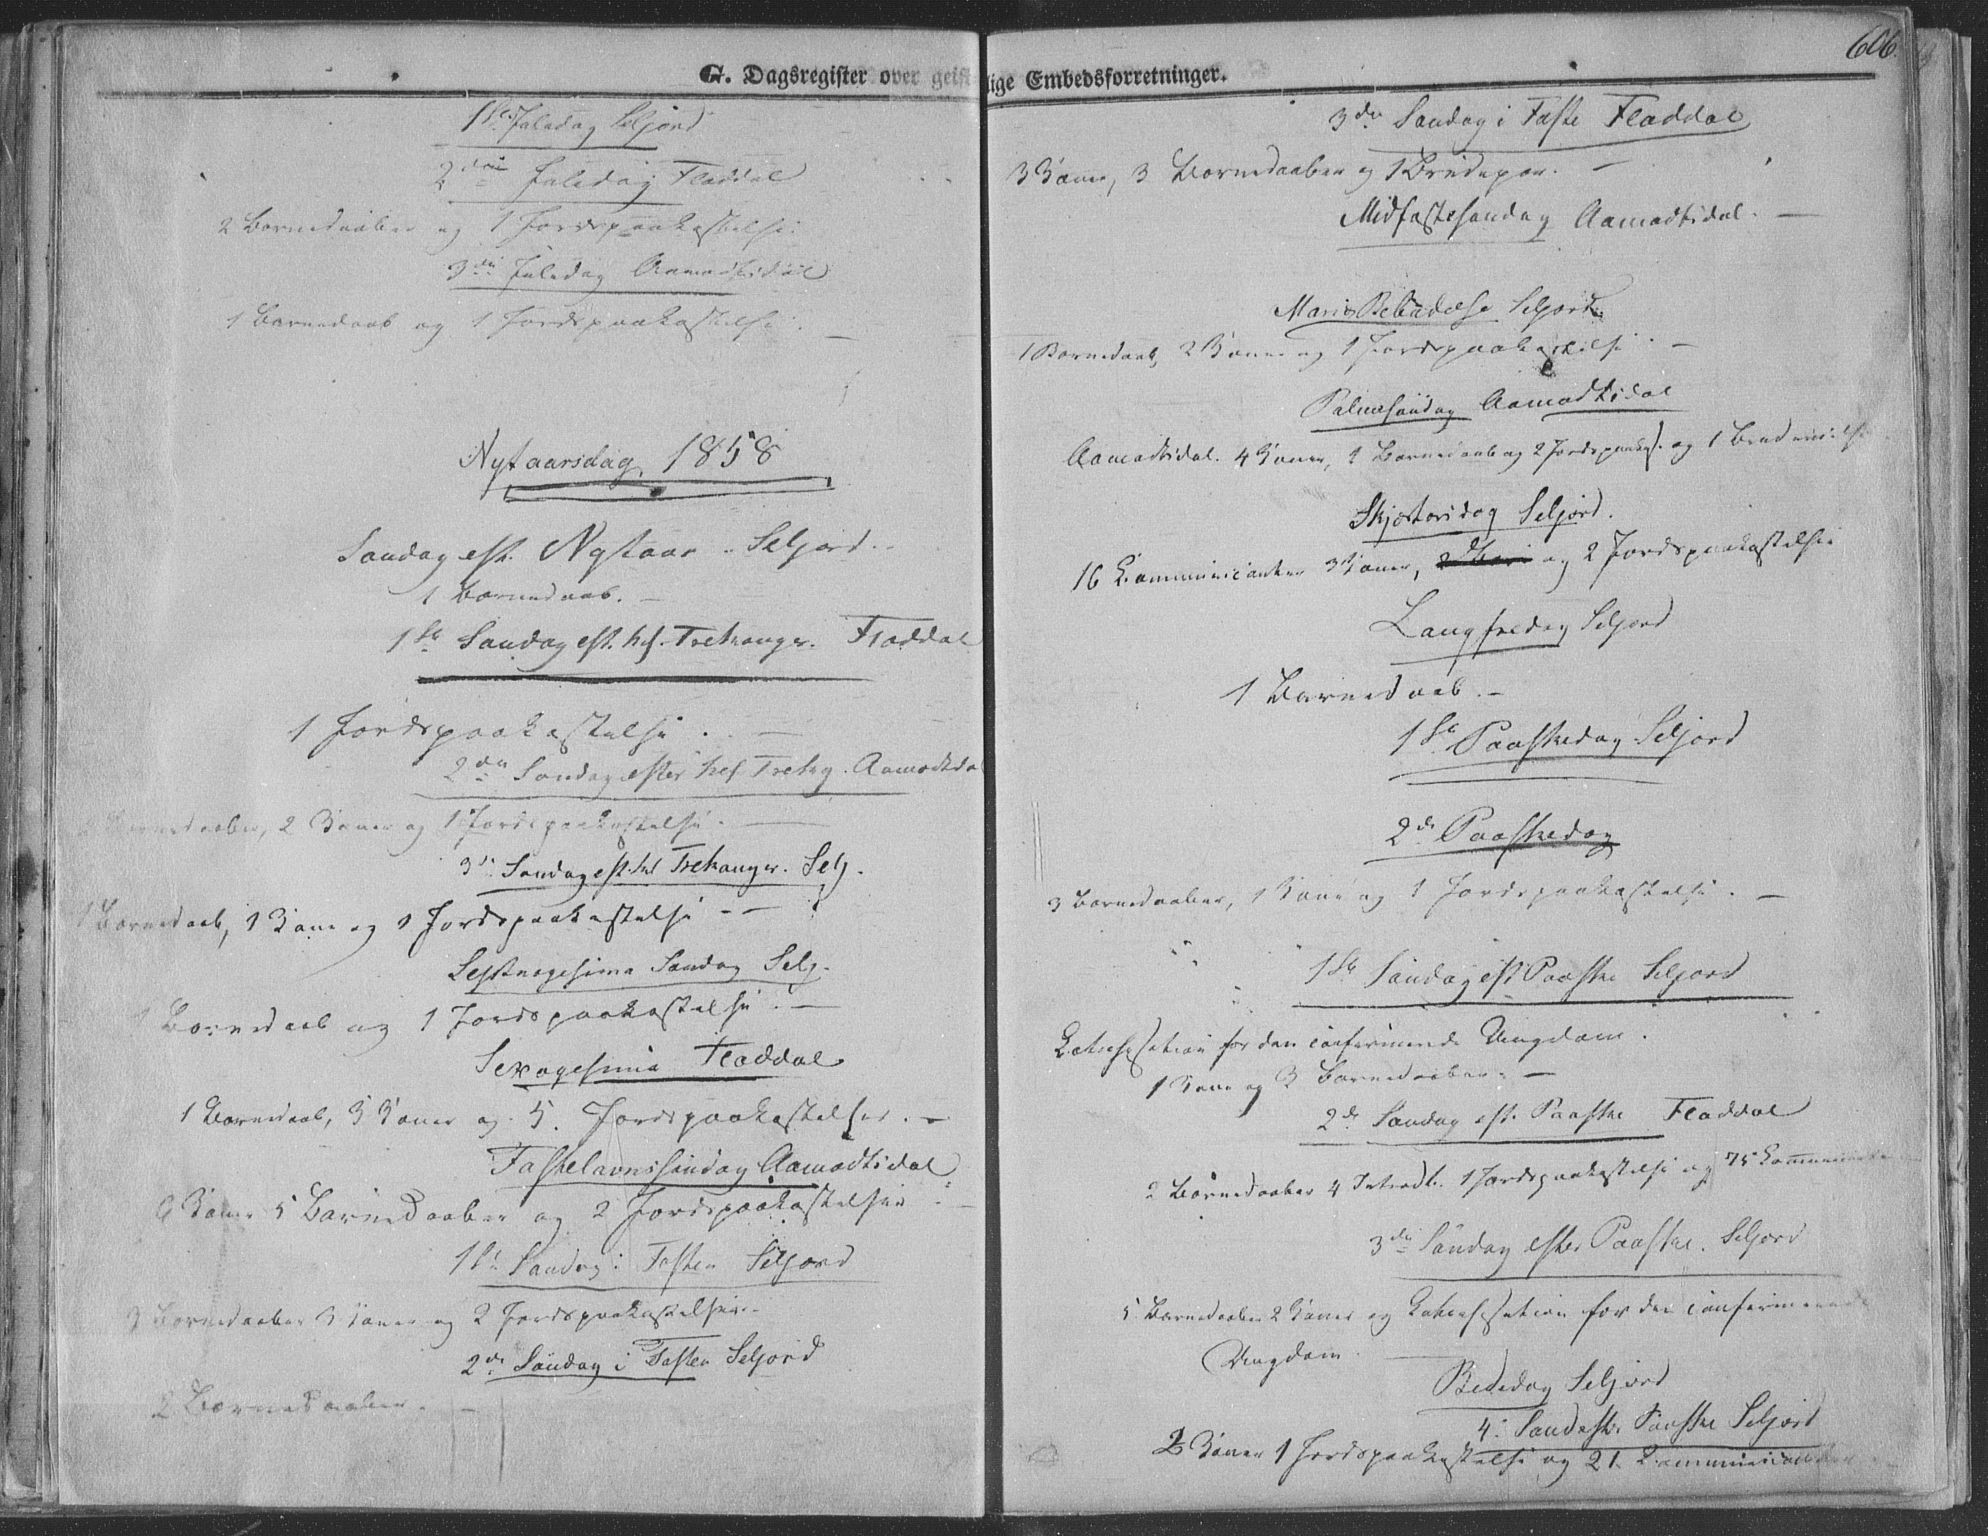 G. Dagsregister over geistlige Embedsforretninger.
606
1ste Juledag Seljord
2den Juledag Fladdal
2 Barnedaaber og 1 Jordspaakastelse.
3die Juledag Aamodtsdal
1 Barnedaab og 1 Jordspaakastelse. —
Nytaarsdag 1858
Søndag eft. Nytaar - Seljord. -
1 Barnedaab. —
1ste Søndag eft. hel. Trekonger. Fladdal
1 Jordspaakastelse. —
2den Søndag efter hel Trekg. Aamodtsdal
Barnedaaber, 2 Koner og 1 Jordspaakastelse. —
3die Søndag eft. hel Trekonger. Selj.
1 Barnedaab, 1 Kone og 1 Jordspaakastelse - —
Septuagesima Søndag Selj.
1 Barnedaab og 1 Jordspaakastelse. —
Sexagesima Fladdal
1 Barnedaab, 3 Koner og 5. Jordspaakastelser. —
Fastelavnssøndag Aamodtsdal
6 Koner 5 Barnedaaber og 2 Jordspaakastelser —
1ste Søndag i Fasten Seljord
3 Barnedaaber 3 Koner og 2 Jordspaakastelser. -
2den Søndag i Fasten Seljord
2 Barnedaaber. —
3die Søndag i Faste Fladdal
3 Koner, 3 Barnedaaber og 1 Brudepar. —
Midfastesøndag Aamodtsdal. —
Mariæ Bebudelse Seljord.
1 Barnedaab, 2 Koner og 1 Jordspaakastelse. —
Palmesøndag Aamodtsdal
Aamodtsdal. 4 Koner, 1 Barnedaab og 2 Jordspaakast. og 1 Brudevielse
Skjærtorsdag Seljord.
16 Communicanter 3 Koner, og 2 Jordspaakastelser
Langfredag Seljord
1 Barnedaab. —
1ste Paaskedag Seljord
2de Paaskedag
3 Barnedaaber, 1 Kone og 1 Jordspaakastelse. —
1ste Søndag eft Paaske Seljord
Katechisation for den confirmerede Ungdom.
1 Kone og 3 Barnedaaber. —
2de Søndag eft. Paaske Fladdal
2 Barnedaaber 4 Introd. 1 Jordspaakastelse og 75 Communicanter
3die Søndag efter Paaske. Seljord
5 Barnedaaber 2 Koner og Katechisation for den confirmerede
Ungdom. —
Bededag Seljord
4. Sønd eft. Paaske Seljord
2 Koner 1 Jordspaakastelse og 21. Communicanter